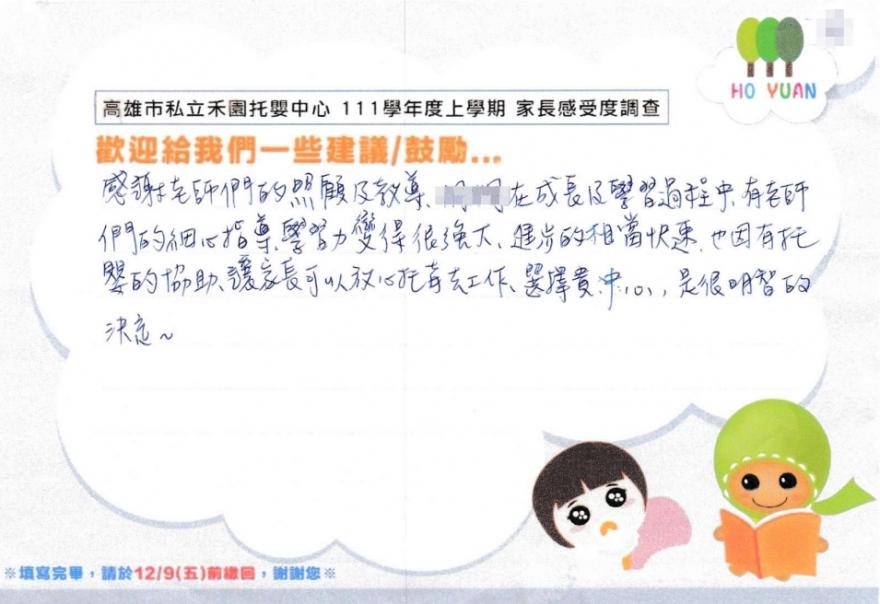 HO YUAN
高雄市私立禾園托嬰中心 111學年度上學期 家長感受度調查
歡迎給我們一些建議/鼓勵...
感謝老師們的照顧及教導、在成長及學習過程中、有老師
們的細心指導、學習力變得很強大、進步的相當快速、也因有托
嬰的協助、讓家長可以放心托育去工作、選擇貴中心、是很明智的
決定~
※填寫完畢，請於12/9(五)前繳回，謝謝您※